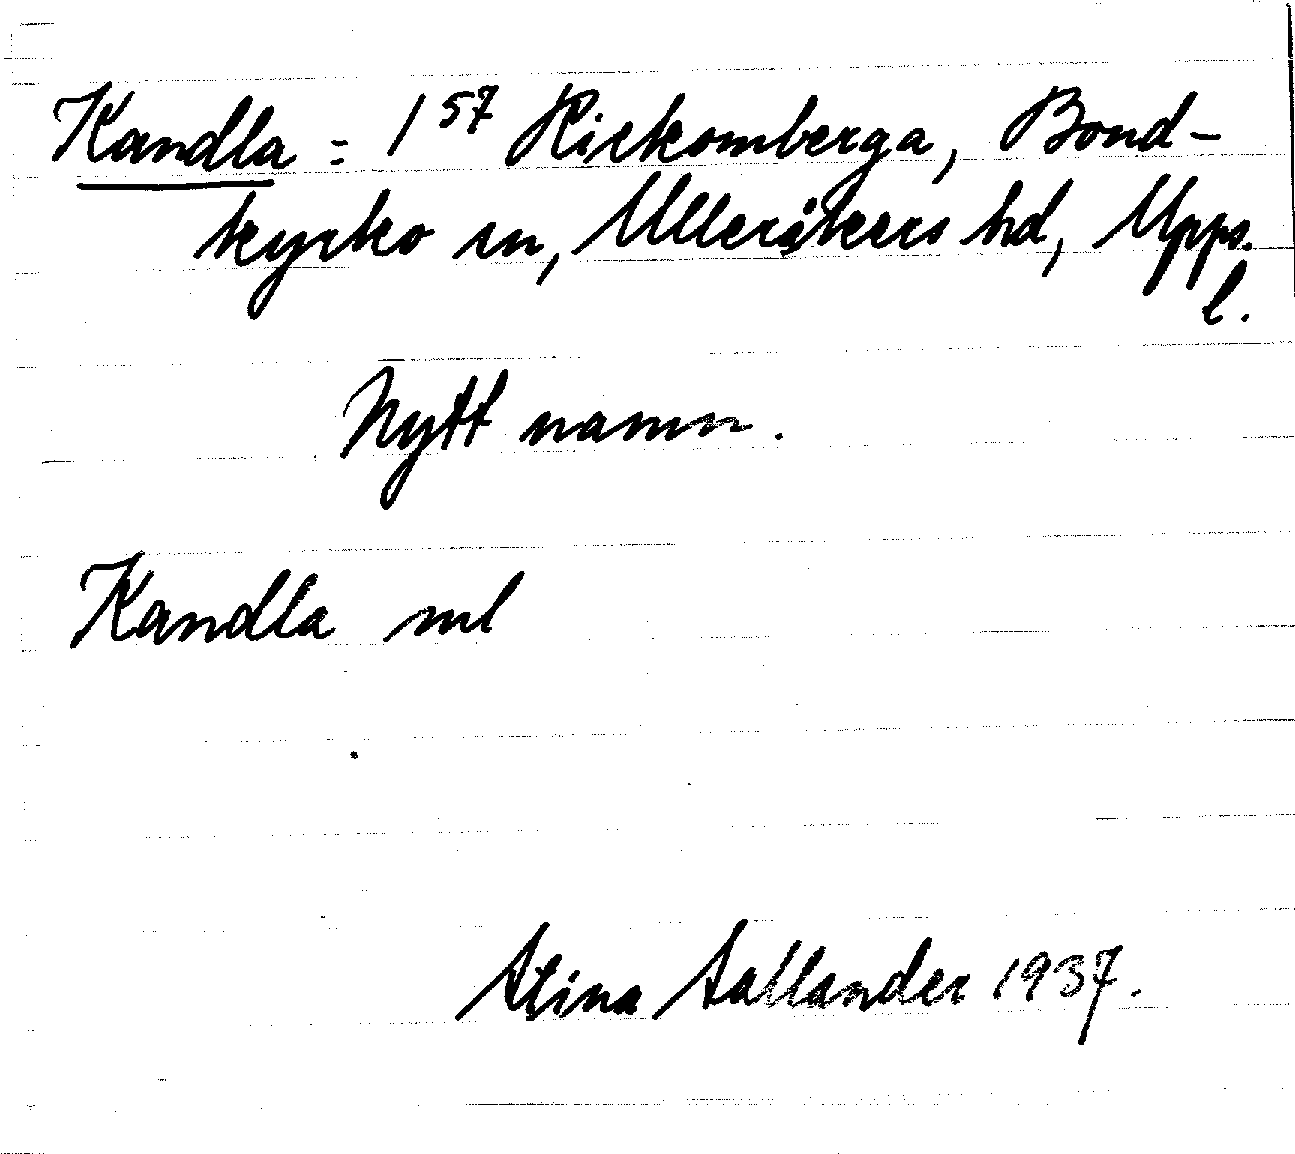 Kandla = 1⁵⁷ Rickomberga, Bond-
kyrko sn, Ulleråkers hd, Upps.
l.
Nytt namn.
Kandla ml
Stina Sallander 1937.